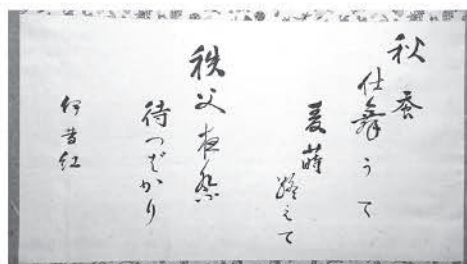 秋蚕
仕舞うて
麦蒔
終えて
秩父夜祭
待つばかり
伊昔紅